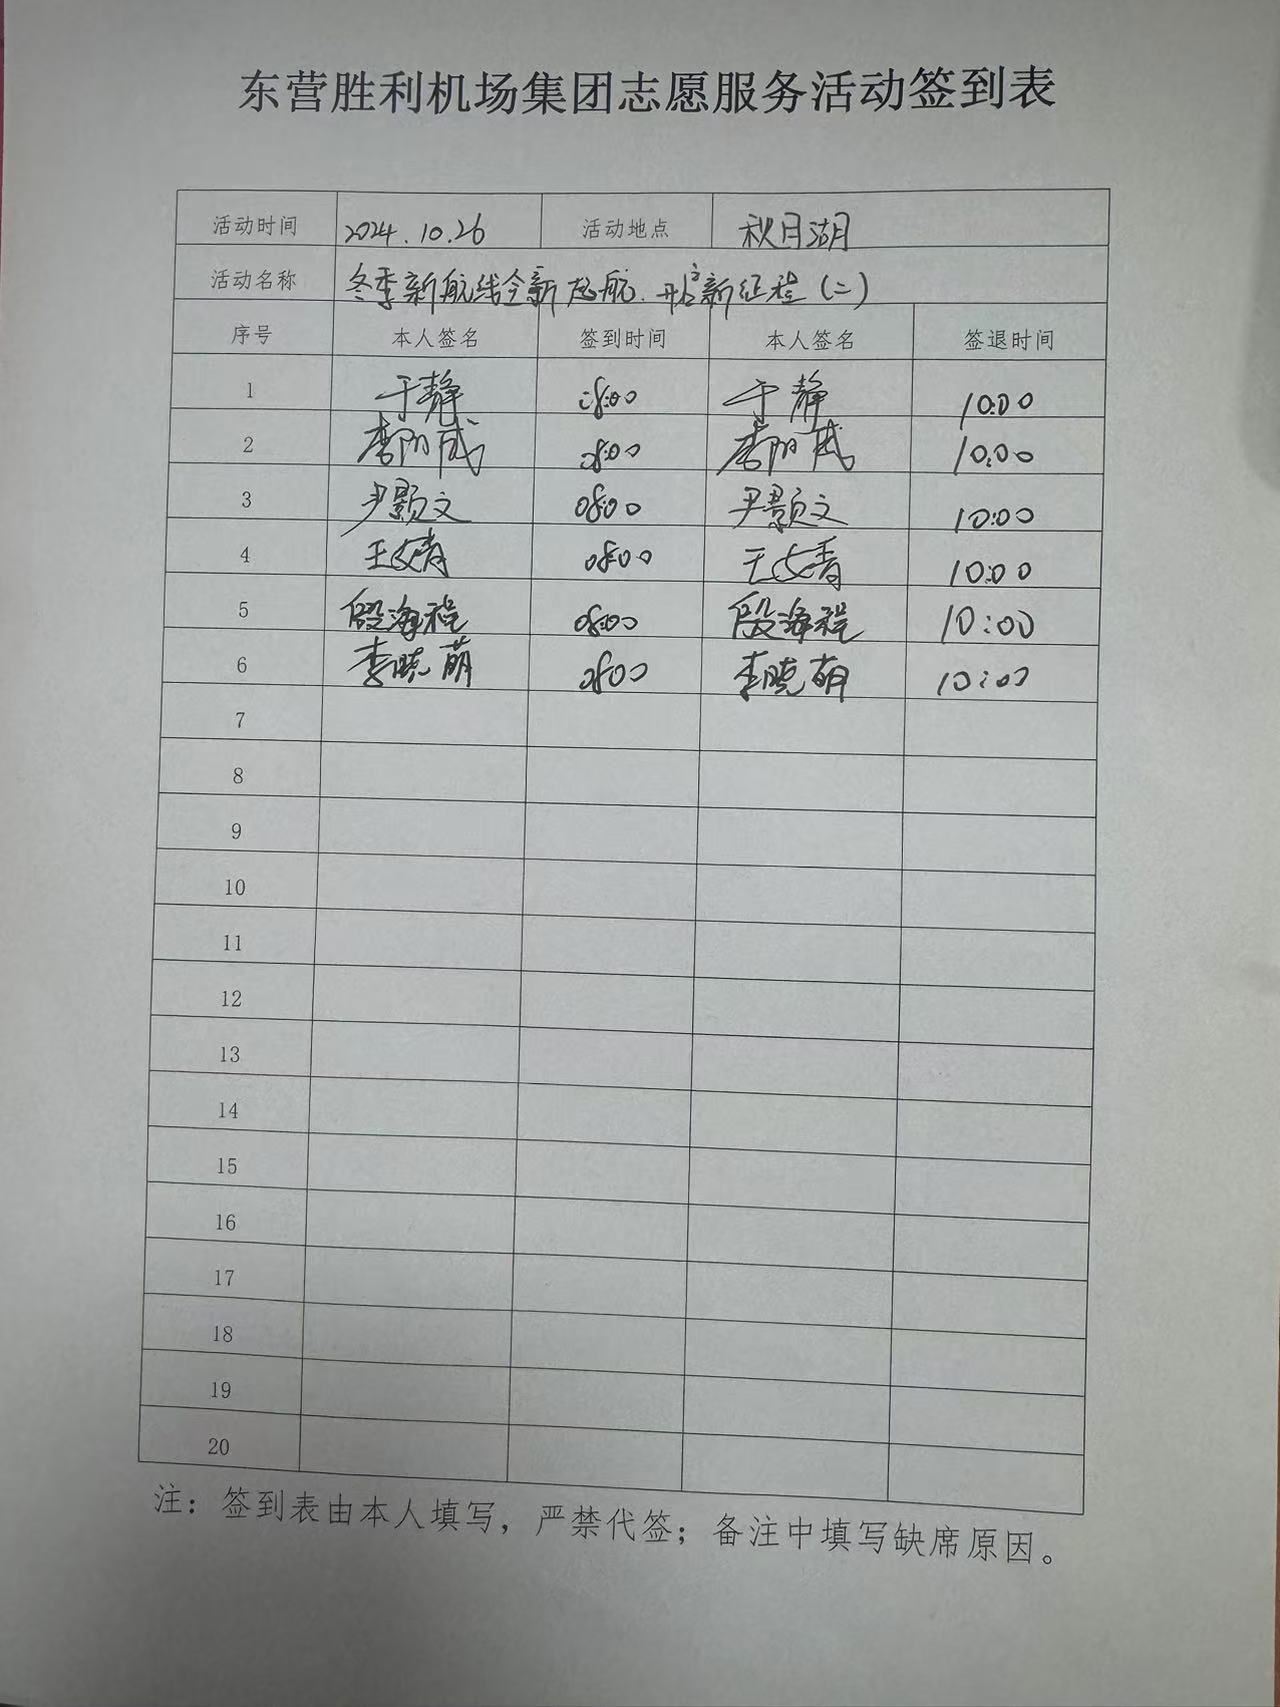 东营胜利机场集团志愿服务活动签到表
活动时间 2024.10.26 活动地点 秋月湖
活动名称 冬季新航线全新起航.开启新征程(二)
序号 本人签名 签到时间 本人签名 签退时间
1 于静 08:00 于静 10:00
2 李阳威 08:00 李阳威 10:00
3 尹颢文 08:00 尹颢文 10:00
4 08:00 10:00
5 殷海程 08:00 殷海程 10:00
6 李晓萌 08:00 李晓萌 10:00
7
8
9
10
11
12
13
14
15
16
17
18
19
20
注：签到表由本人填写，严禁代签；备注中填写缺席原因。